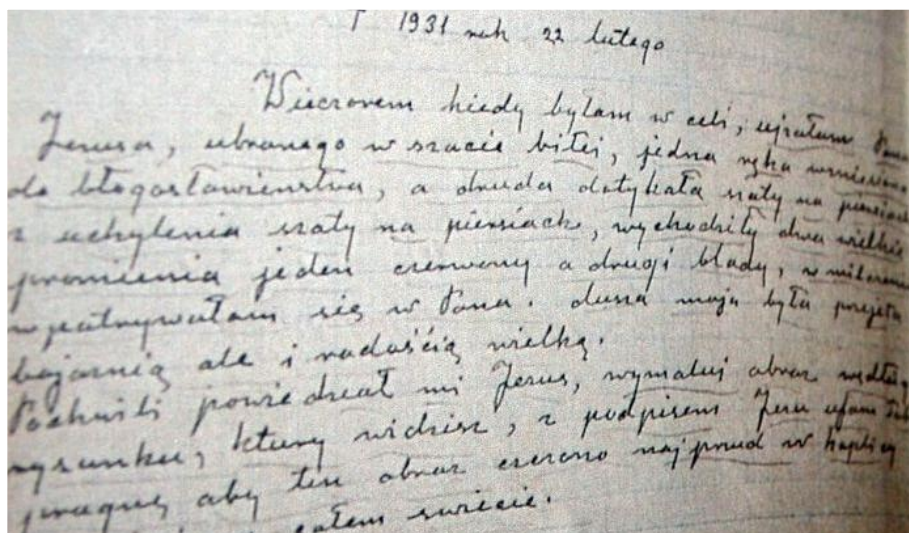 † 1931 rok 22 lutego
Wieczorem kiedy byłam w celi, ujrałam Pana
Jezusa, ubranego w szacie biłej, jedna ręka wzniesiona
do błogosławienstwa, a druda dotykała szaty na piersiach
z uchylenia szaty na piersiach, wychodziły dwa wielkie
promienia jeden czerwony a drugi blady, w milczeniu
wpatrywałam się w Pana. dusza moja była prejęta
bojaznią ale i radośćią wielką.
Pochwili powiedzał mi Jezus, wymaluj obraz według
rysunku, ktury widzisz, z podpisem Jezu ufam Tobie
pragnę aby ten obraz czczono najprud w kaplicy
całem swiecie.